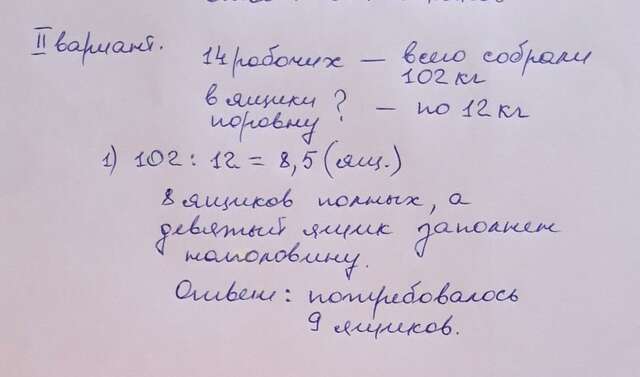 II вариант.
14 рабочих — всего собрали
102 кг
в ящики ? — по 12 кг
поровну
1) 102 : 12 = 8,5 (ящ.)
8 ящиков полных, а
девятый ящик заполнен
наполовину.
Ответ: потребовалось
9 ящиков.